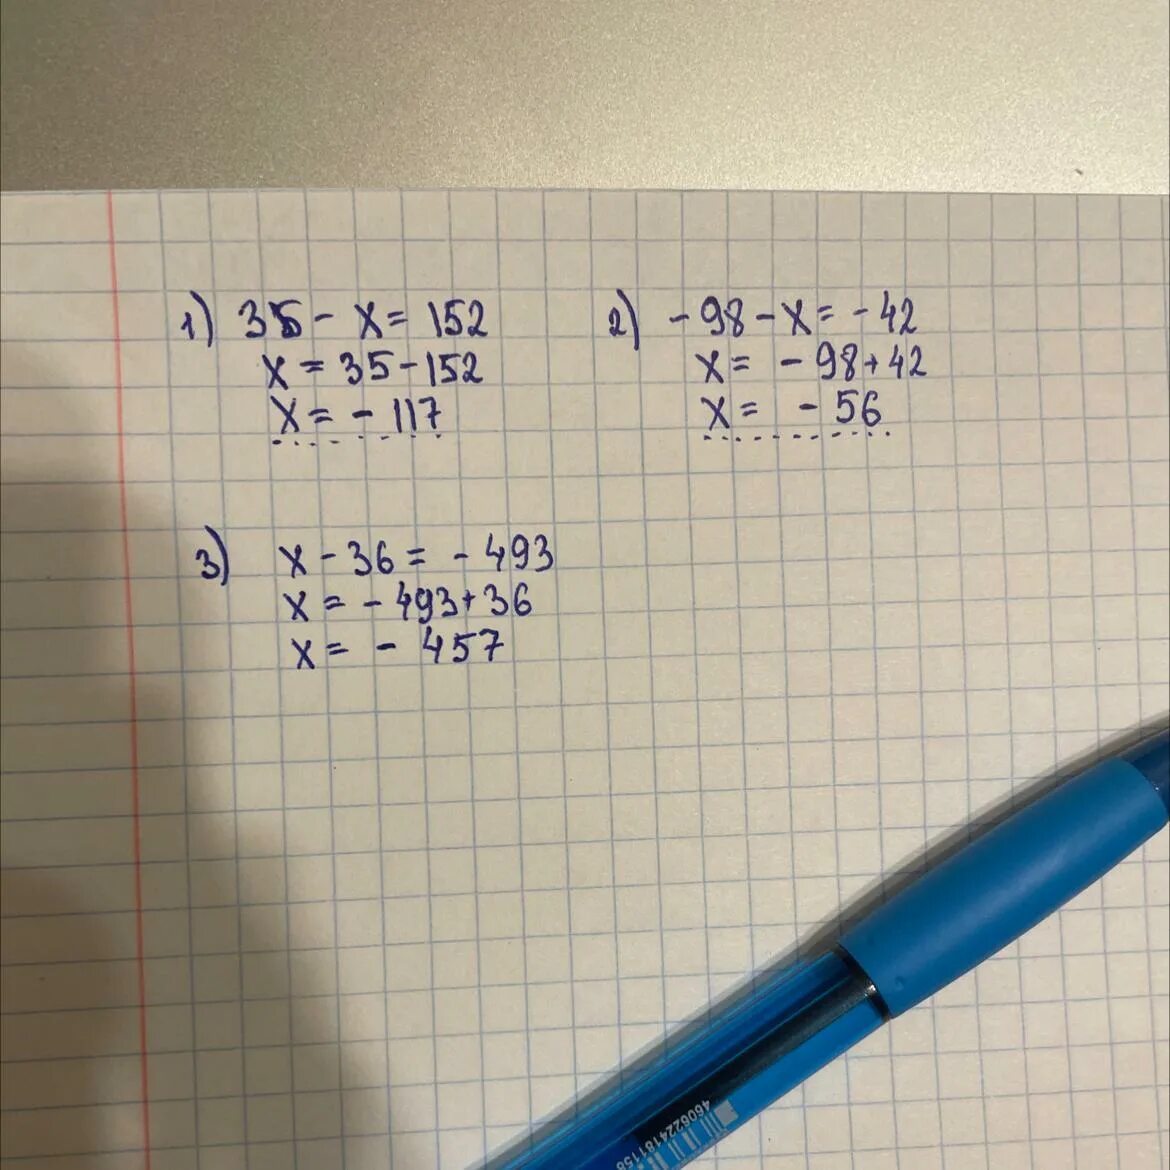 1) 35 - x = 152
x = 35 - 152
x = - 117
2) - 98 - x = - 42
x = - 98 + 42
x = - 56
3) x - 36 = - 493
x = - 493 + 36
x = - 457
4606224181156